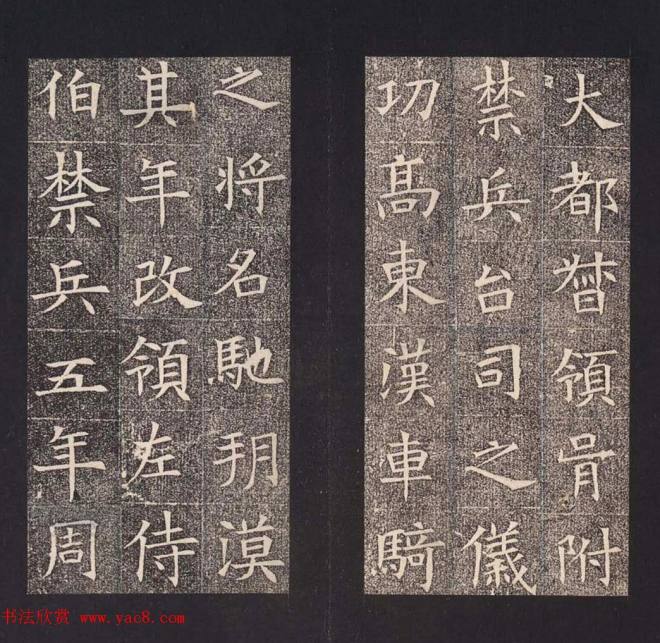 大都督領骨附
禁兵台司之儀
功髙東漢車騎
之将名馳玥漠
其年改領左侍
伯禁兵五年周
书法欣赏 www.yac8.com